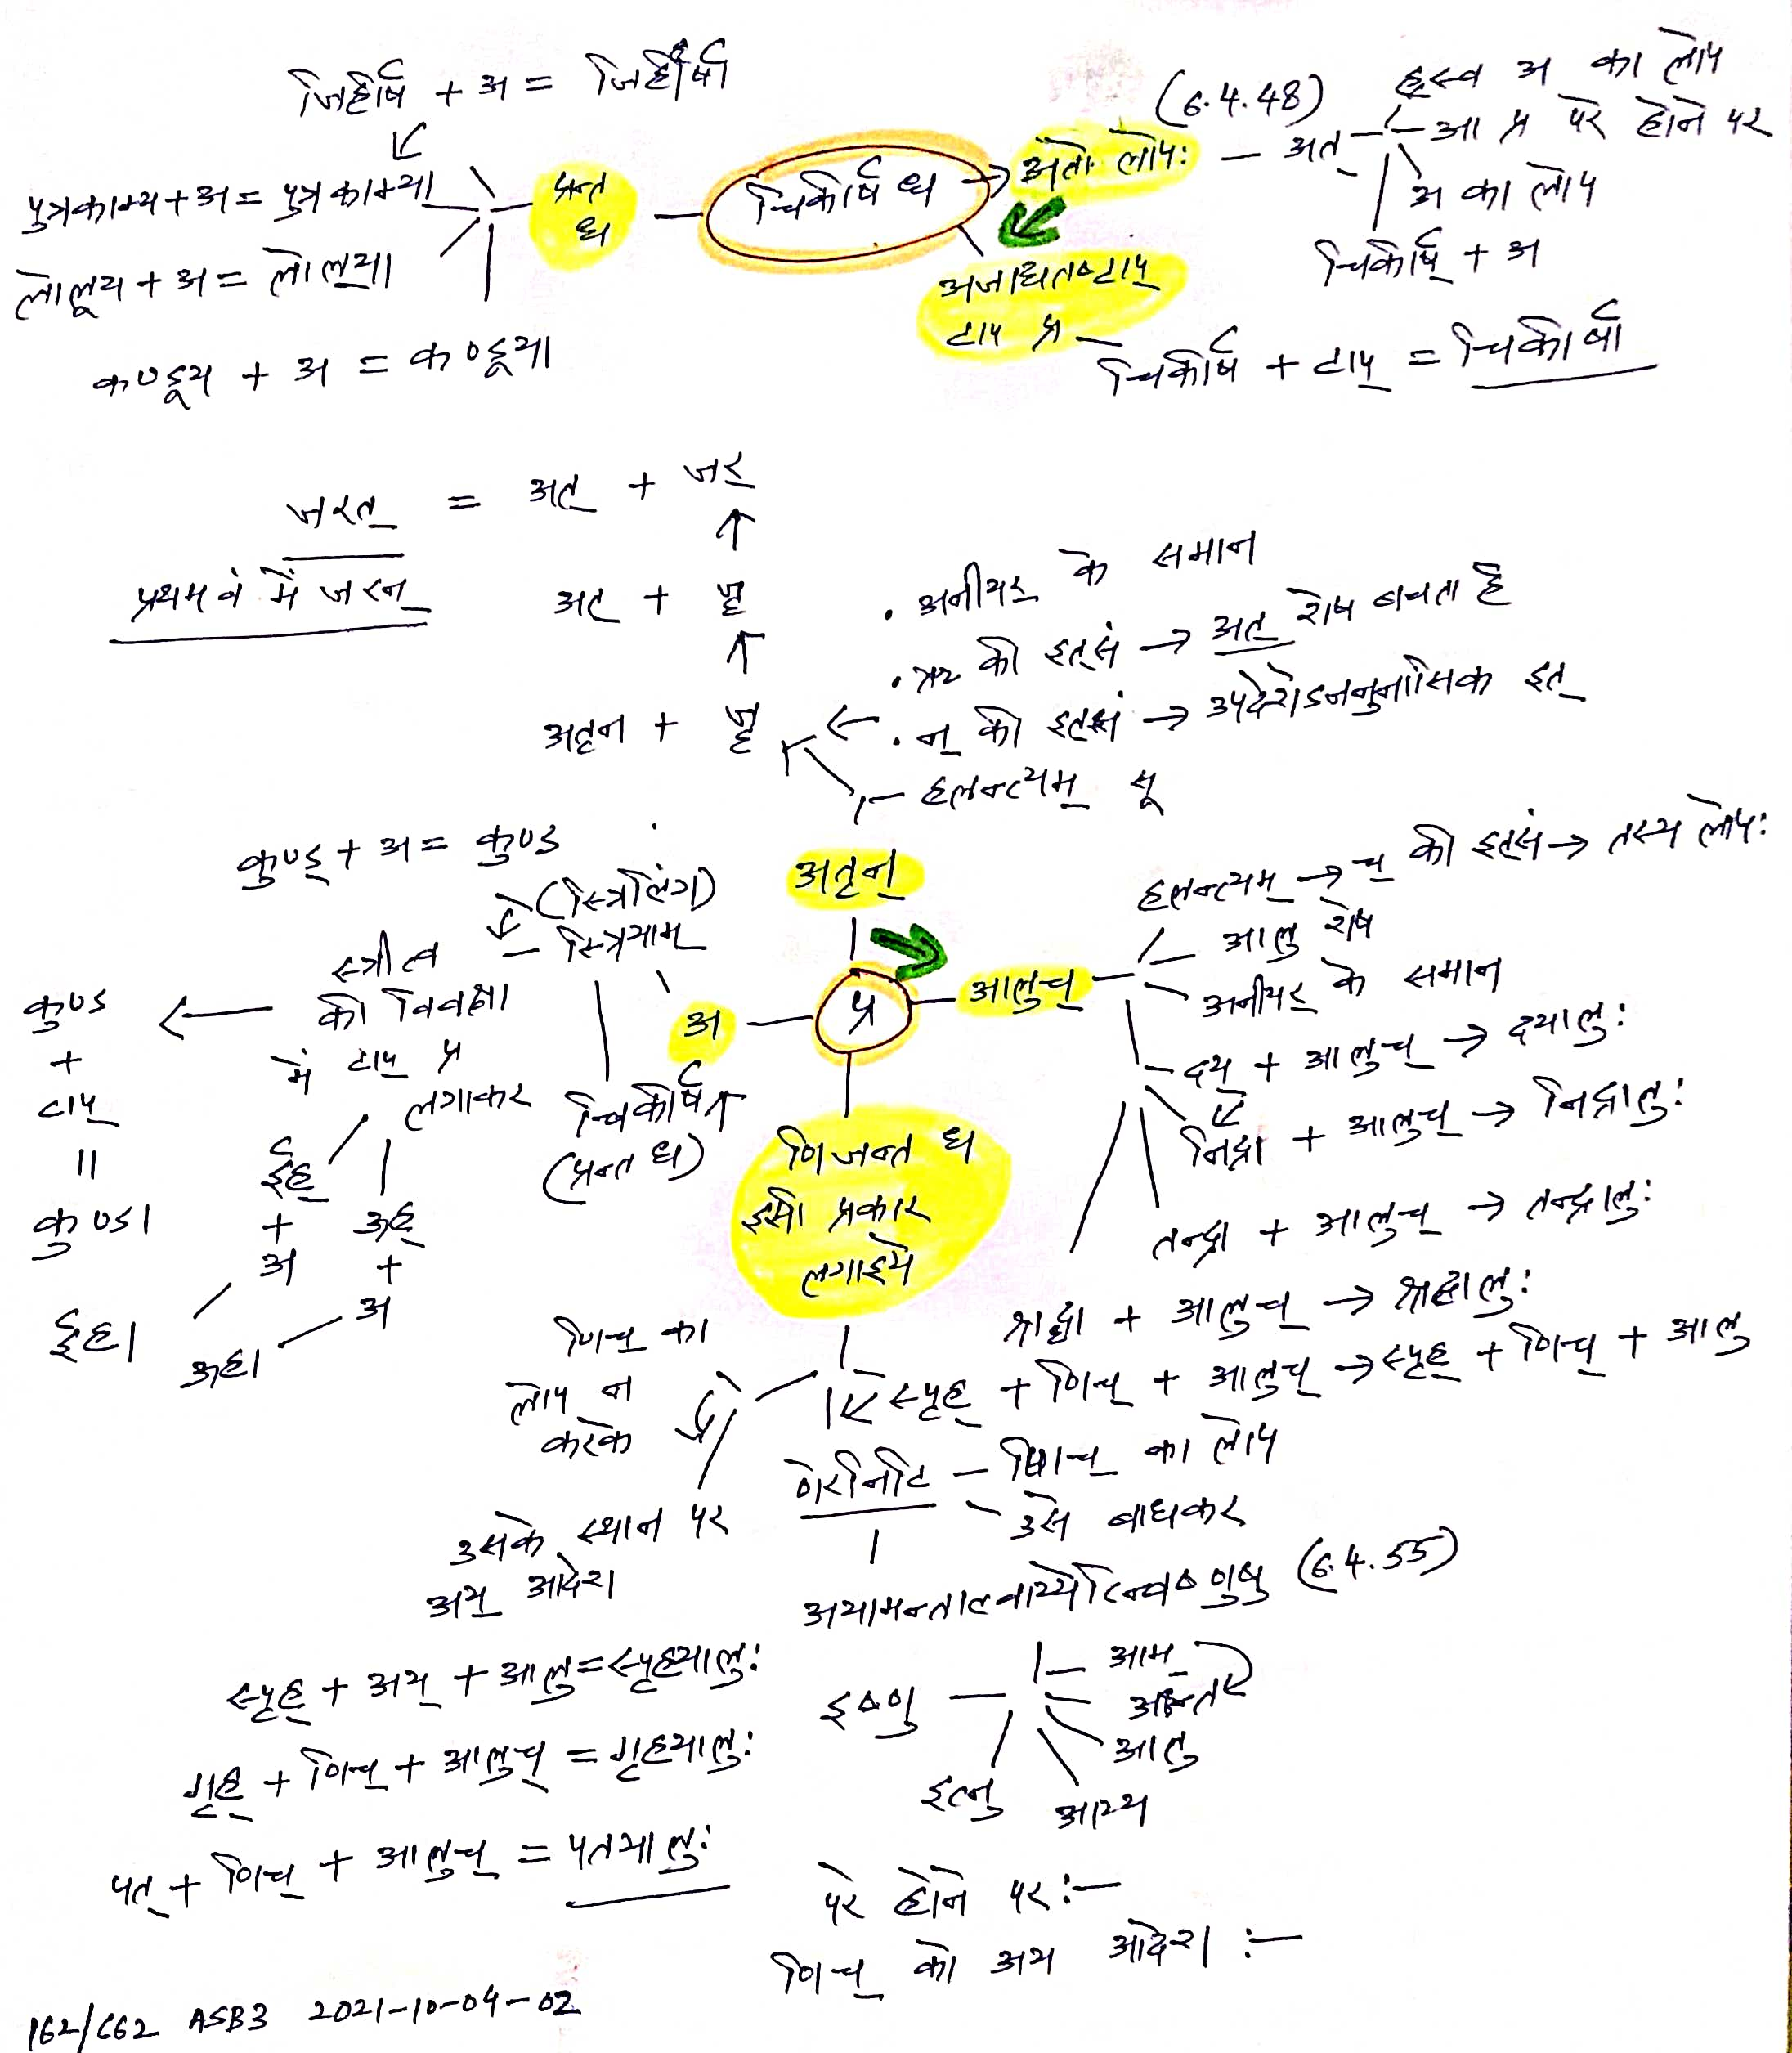 जिहीर्ष + अ = जिहीर्षा
पुत्रकाम्य + अ = पुत्रकाम्या
लोलूय + अ = लोलूया
कण्डूय + अ = कण्डूया
प्रन्त
ध
चिकीर्ष ध
अतो लोपः
(6.4.48)
अत्
ह्रस्व अ का लोप
आ प्र परे होने पर
अ का लोप
चिकीर्ष् + अ
अजाद्यतष्टाप्
टाप प्र
चिकीर्ष + टाप् = चिकीर्षा
जरत् = अत् + जर्
प्रथम वे में जरन्
अत् + जॄ
अतृन + जॄ
. अनीयर् के समान
. ऋ की इत्सं → अत् शेष बचता है
. न् की इत्सं → उपदेशेऽजनुनासिक इत्
हलन्त्यम् सू
कुण्ड् + अ = कुण्ड
(स्त्रिलिंग)
स्त्रियाम्
स्त्रीत्व
की विवक्षा
में टाप् प्र
लगाकर
कुण्ड
+
टाप्
॥
कुण्डा
ईह्
+
अ
ईहा
ऊह्
+
अ
ऊहा
अतृन्
प्र
अ
चिकीर्ष
(प्रन्त ध)
आलुच्
हलन्त्यम् → च् की इत्सं → तस्य लोपः
आलु शेष
अनीयर् के समान
दय् + आलुच् → दयालुः
निद्रा + आलुच् → निद्रालुः
तन्द्रा + आलुच् → तन्द्रालुः
श्रद्धा + आलुच् → श्रद्धालुः
स्पृह् + णिच् + आलुच् → स्पृह् + णिच् + आलु
णिजन्त ध
इसी प्रकार
लगाइये
णिच् का
लोप न
करके
उसके स्थान पर
अय् आदेश
णेरनिटि – णिच् का लोप
उसे बाधकर
अयामन्ताल्वाय्येत्न्विष्णुषु (6.4.55)
आम्
अन्त
आलु
आय्य
इत्नु
इष्णु
स्पृह् + अय् + आलु = स्पृहयालुः
गृह् + णिच् + आलुच् = गृहयालुः
पत् + णिच् + आलुच् = पतयालुः
परे होने पर :–
णिच् को अय आदेश :–
162/662 ASB3 2021-10-04-02